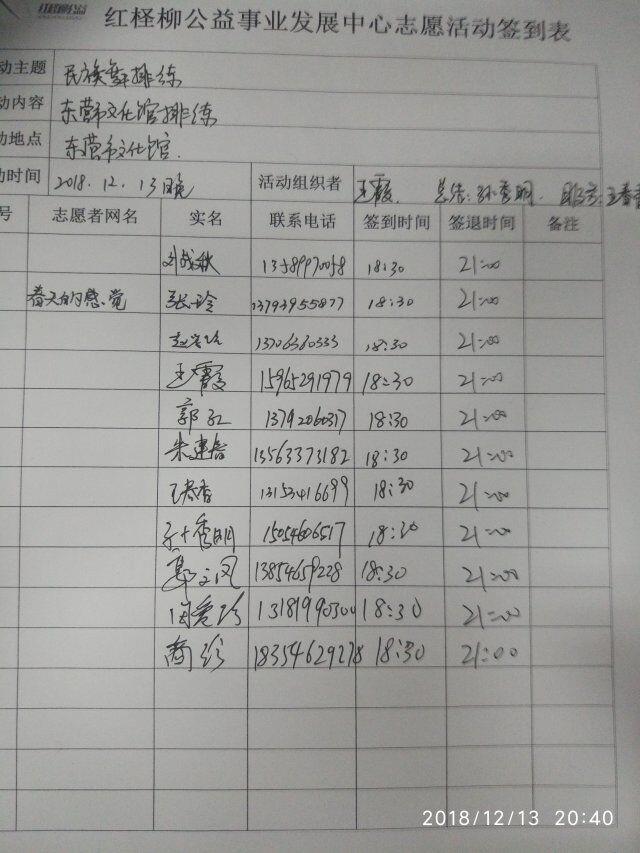 红柽柳公益事业发展中心志愿活动签到表
动主题 民族舞排练
动内容 东营市文化馆排练
动地点 东营市文化馆.
动时间 2018.12.13晚 活动组织者 王霞. 总结:孙秀明.
号 志愿者网名 实名 联系电话 签到时间 签退时间 备注
刘战秋 13589970058 18:30 21:00
春天的感觉 张玲 13793955877 18:30 21:00
13706360333 18:30 21:00
王霞 15965291979 18:30 21:00
郭红 13792060317 18:30 21:00
朱建信 13563373182 18:30 21:00
王春香 13153416699 18:30 21:00
孙秀明 15054606517 18:30 21:00
郭文凤 13854659228 18:30 21:00
闫爱珍 13181990300 18:30 21:00
商珍 18354629278 18:30 21:00
2018/12/13 20:40